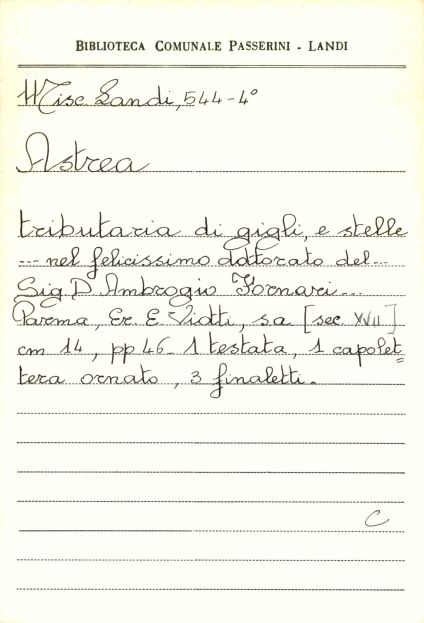 BIBLIOTECA COMUNALE PASSERINI - LANDI
Misc Landi, 544-4°
Astrea
tributaria di gigli, e stelle
--- nel felicissimo dottorato del---
Sig. D. Ambrogio Fornari---
Parma, Er. E. Viotti, s.a. [sec. XVII]
cm 14, pp 46- 1 testata, 1 capolet=
tera ornato, 3 finaletti.
C